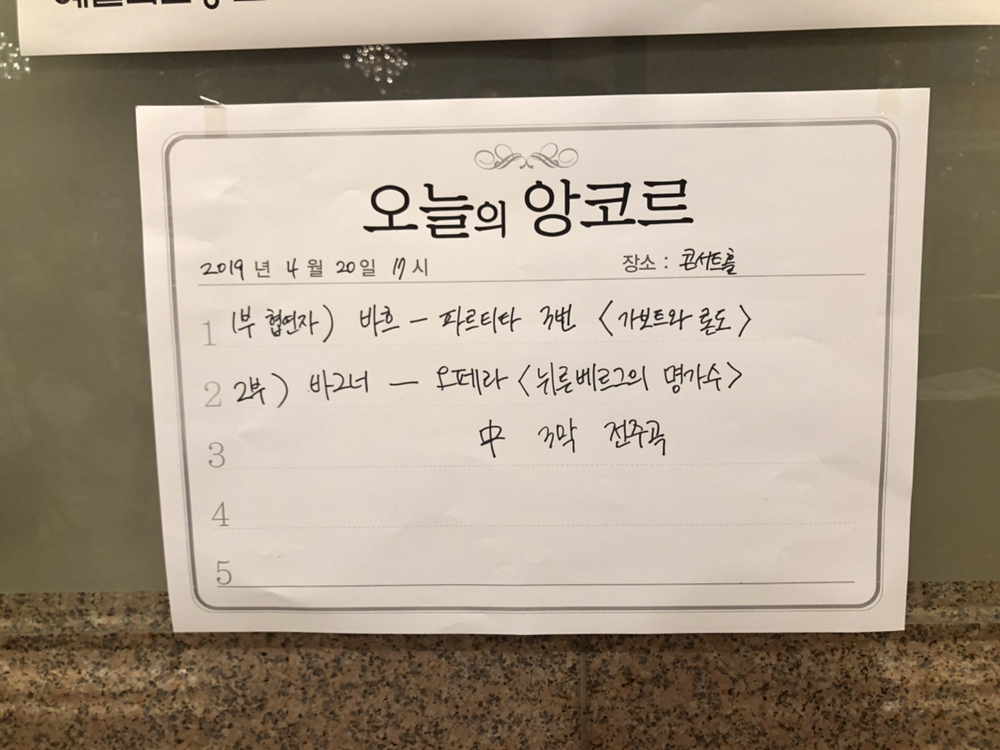 오늘의 앙코르
2019 년 4 월 20 일 17 시 장소 : 콘서트홀
1 1부 협연자) 바흐 - 파르티타 3번 〈가보트와 론도〉
2 2부) 바그너 - 오페라 〈뉘른베르그의 명가수〉
3 中 3막 전주곡
4
5